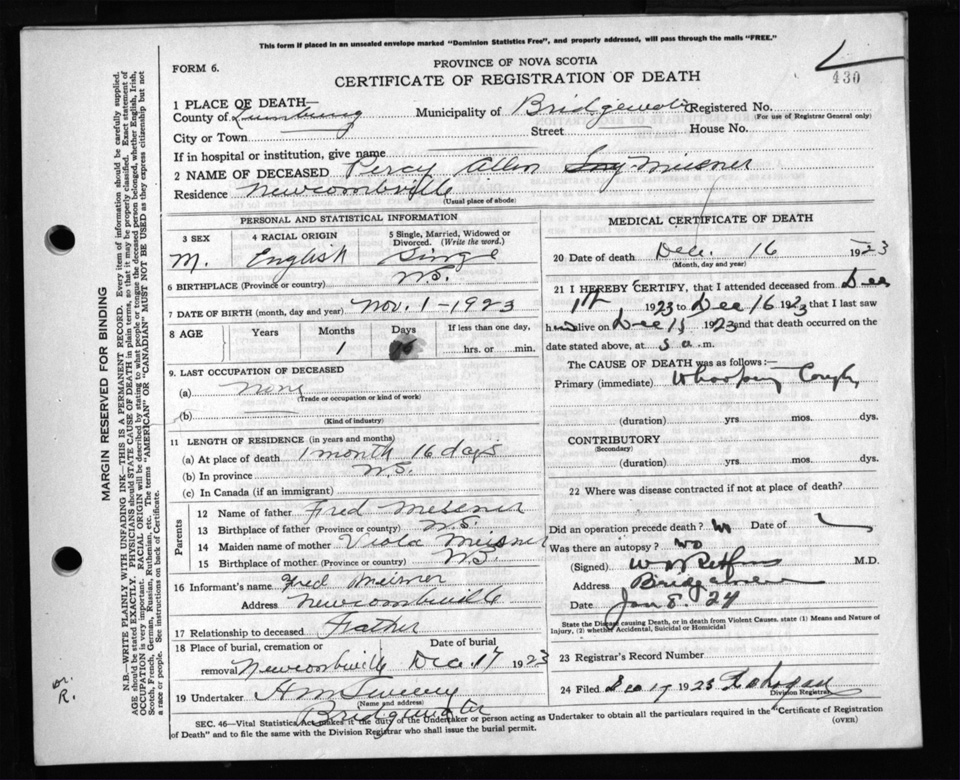 This form if placed in an unsealed envelope marked "Dominion Statistics Free", and properly addressed, will pass through the mails "FREE."
FORM 6.
PROVINCE OF NOVA SCOTIA
CERTIFICATE OF REGISTRATION OF DEATH
430
1 PLACE OF DEATH—
County of Lunenburg Municipality of Bridgewater Registered No.
(For use of Registrar General only)
City or Town Street House No.
If in hospital or institution, give name
2 NAME OF DECEASED Percy Allen Meisner
Residence Newcombville
(Usual place of abode)
PERSONAL AND STATISTICAL INFORMATION
3 SEX 4 RACIAL ORIGIN 5 Single, Married, Widowed or Divorced. (Write the word.)
M. English Single
6 BIRTHPLACE (Province or country) N.S.
7 DATE OF BIRTH (month, day and year) Nov. 1-1923
8 AGE Years Months Days If less than one day,
1 hrs. or min.
9. LAST OCCUPATION OF DECEASED
(a) None
(Trade or occupation or kind of work)
(b)
(Kind of industry)
11 LENGTH OF RESIDENCE (in years and months)
(a) At place of death 1 month 16 days
(b) In province N.S.
(c) In Canada (if an immigrant)
Parents
12 Name of father Fred Meisner
13 Birthplace of father (Province or country) N.S.
14 Maiden name of mother Viola Meisner
15 Birthplace of mother (Province or country) N.S.
16 Informant's name Fred Meisner
Address Newcombville
17 Relationship to deceased Father
18 Place of burial, cremation or Date of burial
removal Newcombville Dec. 17 1923
19 Undertaker H M Sweeny
(Name and address)
Bridgewater
MEDICAL CERTIFICATE OF DEATH
20 Date of death Dec. 16 1923
(Month, day and year)
21 I HEREBY CERTIFY, that I attended deceased from Dec
1923 to Dec 16 1923 that I last saw
h alive on Dec 15 1923 and that death occurred on
date stated above, at 5 a.m.
The CAUSE OF DEATH was as follows:—
Primary (immediate) Whooping Cough
(duration) yrs mos. dys.
CONTRIBUTORY
(Secondary)
(duration) yrs. mos. dys.
22 Where was disease contracted if not at place of death?
Did an operation precede death? No Date of
Was there an autopsy? no
(Signed) M.D.
Address Bridgewater
Date Jan 8. 24
State the Disease causing Death, or in death from Violent Causes, state (1) Means and Nature of
Injury, (2) whether Accidental, Suicidal or Homicidal
23 Registrar's Record Number
24 Filed Dec 17 1923
Division Registrar
SEC. 46—Vital Statistics Act makes it the duty of the Undertaker or person acting as Undertaker to obtain all the particulars required in the "Certificate of Registration
of Death" and to file the same with the Division Registrar who shall issue the burial permit.
(OVER)
MARGIN RESERVED FOR BINDING
N.B.—WRITE PLAINLY WITH UNFADING INK—THIS IS A PERMANENT RECORD. Every item of information should be carefully supplied.
AGE should be stated EXACTLY. PHYSICIANS should STATE CAUSE OF DEATH in plain terms, so that it may be properly classified. Exact statement of
OCCUPATION is very important. RACIAL ORIGIN will be described by stating to what people or tongue the deceased person belonged, whether English, Irish,
Scotch, French, German, Russian, Ruthenian, etc. The terms "AMERICAN" OR "CANADIAN" MUST NOT BE USED as they express citizenship but not
a race or people. See instructions on back of Certificate.
R.